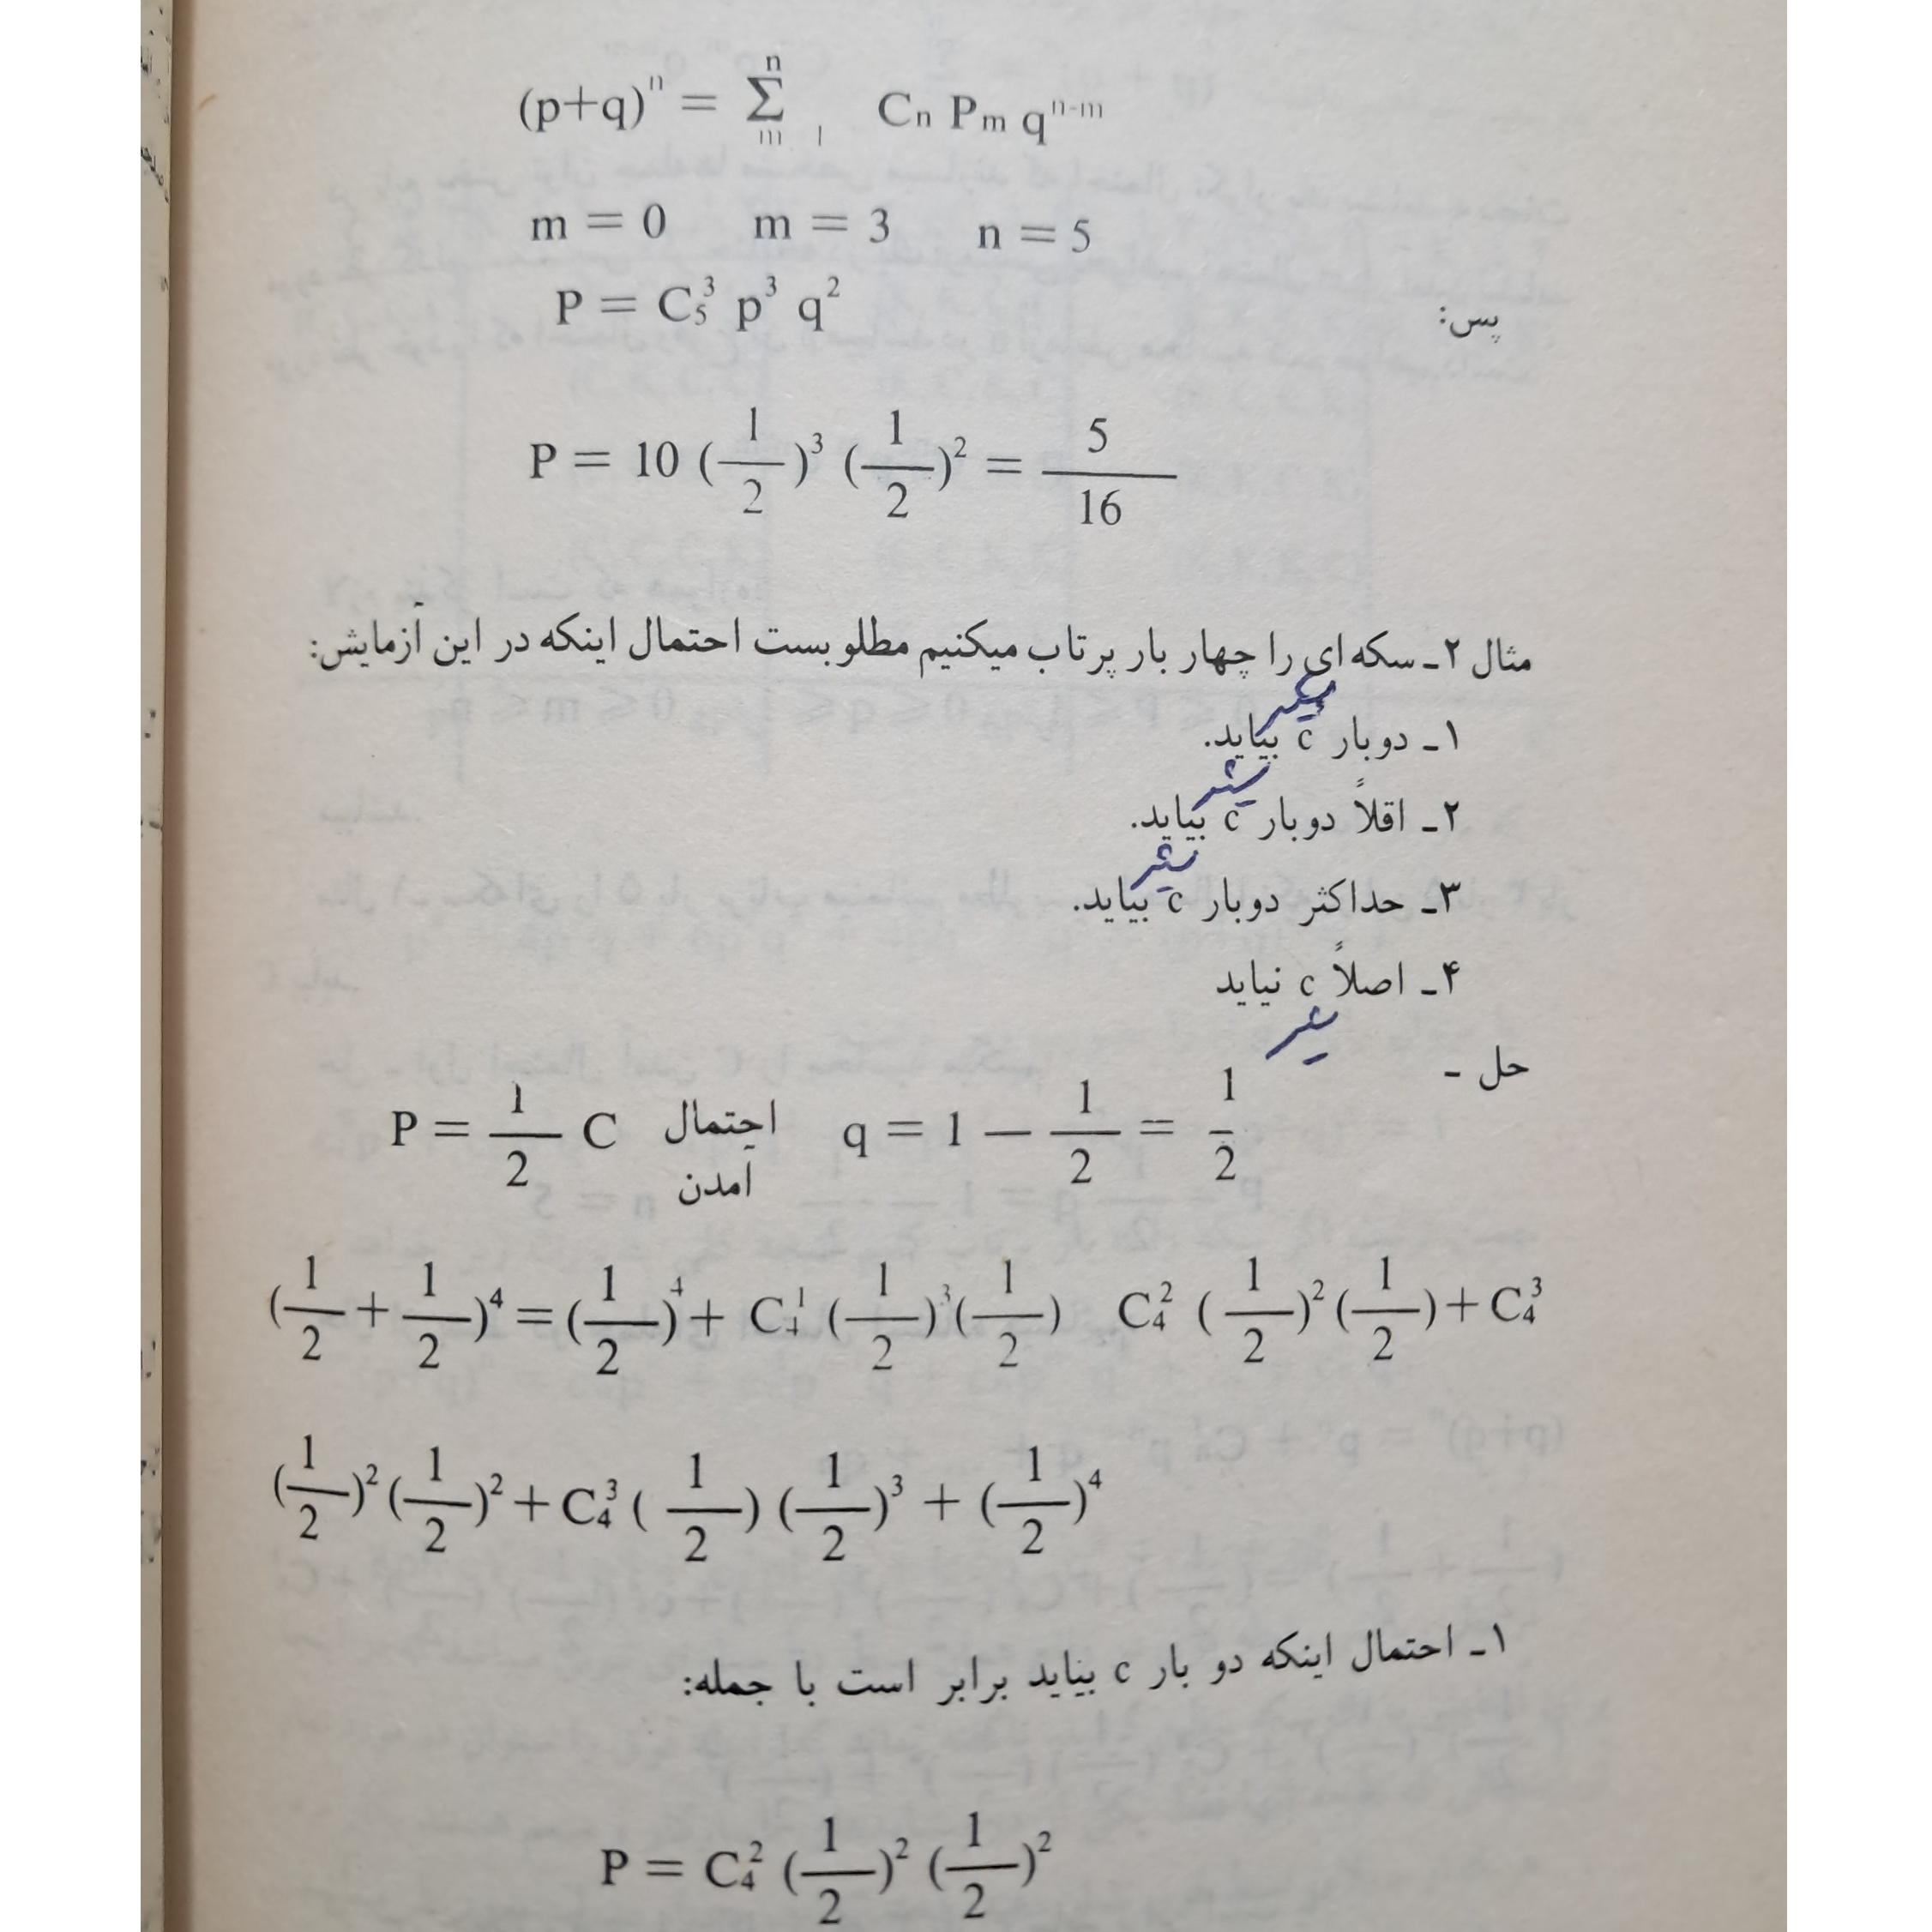 (p+q)ⁿ = Σ n m 1 Cn Pm qⁿ⁻ᵐ
m = 0 m = 3 n = 5
پس: P = C₅³ p³ q²
P = 10 (1/2)³ (1/2)² = 5/16
مثال ۲ـ سکه‌ای را چهار بار پرتاب میکنیم مطلوبست احتمال اینکه در این آزمایش:
شیر
۱ـ دوبار c بیاید.
شیر
۲ـ اقلاً دوبار c بیاید.
شیر
۳ـ حداکثر دوبار c بیاید.
۴ـ اصلاً c نیاید
شیر
حل ـ
P = 1/2 C احتمال آمدن q = 1 — 1/2 = 1/2
(1/2 + 1/2)⁴ = (1/2)⁴ + C₄¹ (1/2)³ (1/2) C₄² (1/2)² (1/2) + C₄³
(1/2)² (1/2)² + C₄³ (1/2) (1/2)³ + (1/2)⁴
۱ـ احتمال اینکه دو بار c بیاید برابر است با جمله:
P = C₄² (1/2)² (1/2)²